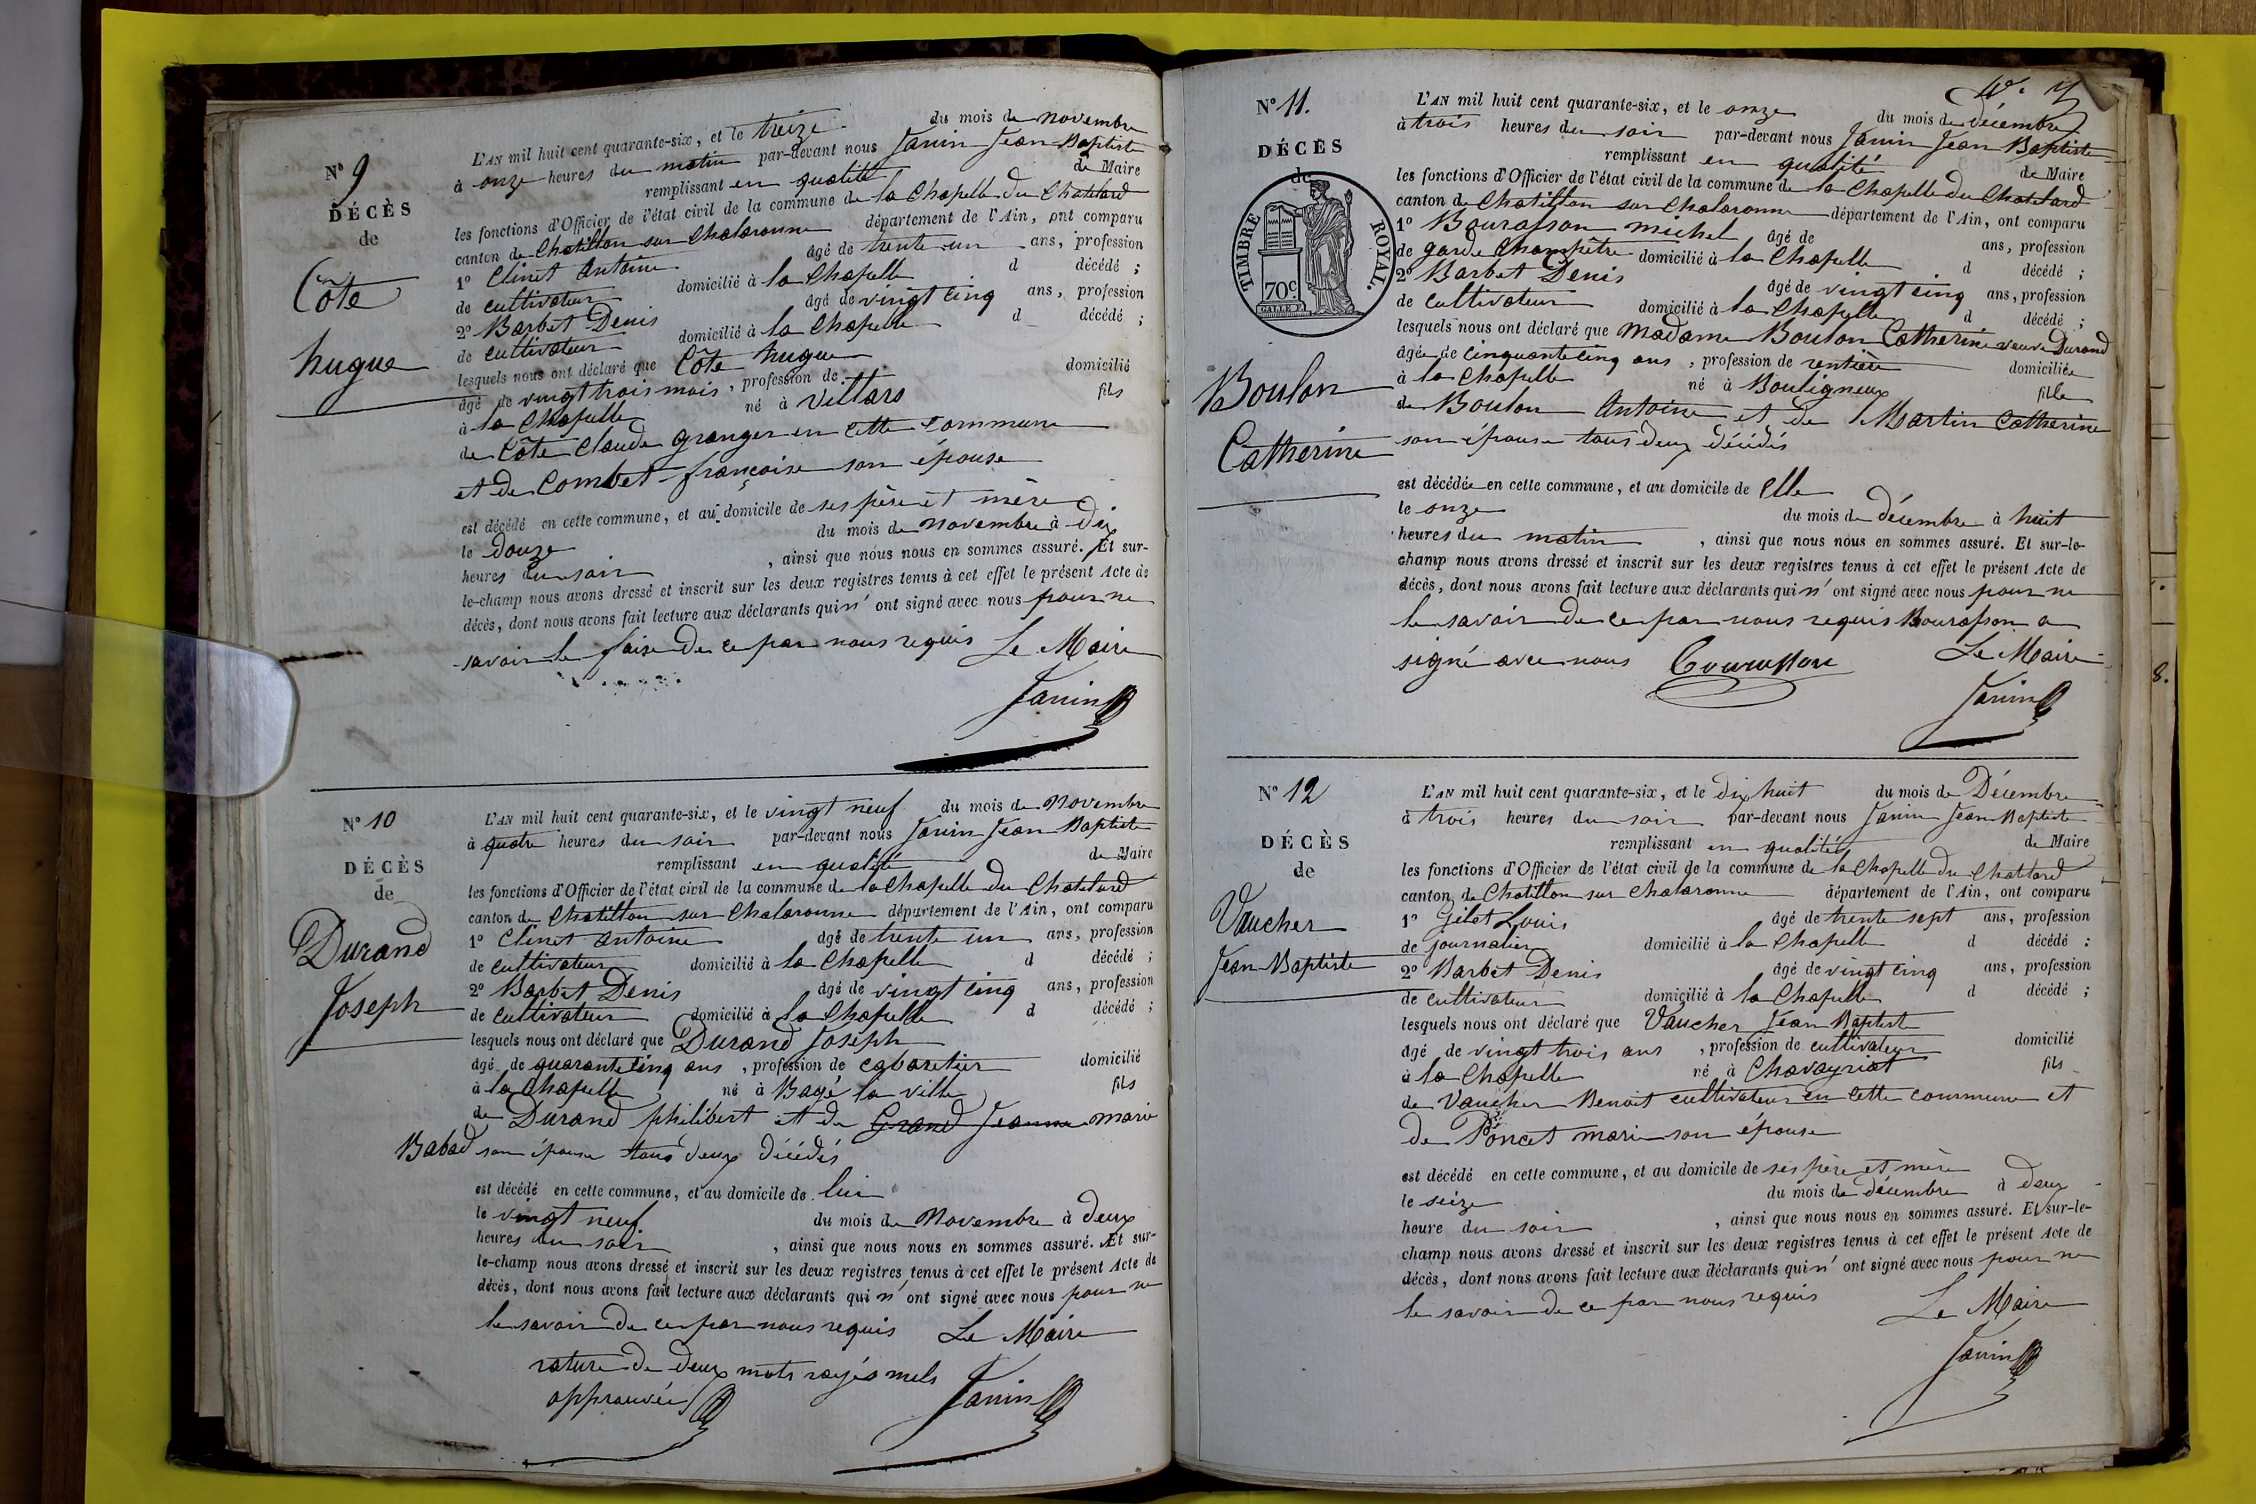 N° 9
DÉCÈS
de
Côte
hugue
L'AN mil huit cent quarante-six, et le treize du mois de novembre
à onze heures du matin par-devant nous Janin Jean Baptiste
remplissant en qualité de Maire
les fonctions d'Officier de l'état civil de la commune de la Chapelle du Chatelard
canton de Chatillon sur Chalaronne département de l'Ain, ont comparu
1° Clinet Antoine âgé de trente un ans, profession
de cultivateur domicilié à la Chapelle d décédé ;
2° Barbet Denis âgé de vingt cinq ans, profession
de cultivateur domicilié à la Chapelle d décédé ;
lesquels nous ont déclaré que Côte hugue
âgé de vingt trois mois, profession de domicilié
à la Chapelle né à Villars fils
de Côte Claude granger en cette commune
et de Combet françoise son épouse
est décédé en cette commune, et au domicile de ses père et mère
le douze du mois de novembre à dix
heures du soir , ainsi que nous nous en sommes assuré. Et sur-
le-champ nous avons dressé et inscrit sur les deux registres tenus à cet effet le présent Acte de
décès, dont nous avons fait lecture aux déclarants qui n' ont signé avec nous pour ne
savoir le faire de ce par nous requis Le Maire
Janin
N° 10
DÉCÈS
de
Durand
Joseph
L'AN mil huit cent quarante-six, et le vingt neuf du mois de Novembre
à quatre heures du soir par-devant nous Janin Jean Baptiste
remplissant en qualité de Maire
les fonctions d'Officier de l'état civil de la commune de la Chapelle du Chatelard
canton de Chatillon sur Chalaronne département de l'Ain, ont comparu
1° Clinet antoine âgé de trente un ans, profession
de cultivateur domicilié à la Chapelle d décédé ;
2° Barbet Denis âgé de vingt cinq ans, profession
de cultivateur domicilié à la Chapelle d décédé ;
lesquels nous ont déclaré que Durand Joseph
âgé de quarante cinq ans, profession de cabaretier domicilié
à la Chapelle né à Bagé la ville fils
de Durand philibert et de Grand Jeanne marie
Babad son épouse tous deux décédés
est décédé en cette commune, et au domicile de lui
le vingt neuf du mois de Novembre à deux
heures du soir , ainsi que nous nous en sommes assuré. Et sur-
le-champ nous avons dressé et inscrit sur les deux registres tenus à cet effet le présent Acte de
décès, dont nous avons fait lecture aux déclarants qui n' ont signé avec nous pour ne
le savoir de ce par nous requis Le Maire
rature de deux mots rayés nuls
approuvée Janin
N° 11.
DÉCÈS
de
TIMBRE ROYAL.
70c
Boulon
Catherine
L'AN mil huit cent quarante-six, et le onze du mois de décembre
à trois heures du soir par-devant nous Janin Jean Baptiste
remplissant en qualité de Maire
les fonctions d'Officier de l'état civil de la commune de la Chapelle du Chatelard
canton de Chatillon sur Chalaronne département de l'Ain, ont comparu
1° Bourasson michel âgé de ans, profession
de garde Champêtre domicilié à la Chapelle d décédé ;
2° Barbet Denis âgé de vingt cinq ans, profession
de cultivateur domicilié à la Chapelle d décédé ;
lesquels nous ont déclaré que madame Boulon Catherine veuve Durand
âgée de cinquante cinq ans, profession de rentière domiciliée
à la Chapelle né à Bouligneux fille
de Boulon Antoine et de Martin Catherine
son épouse tous deux décédés
est décédée en cette commune, et au domicile de elle
le onze du mois de décembre à huit
heures du matin , ainsi que nous nous en sommes assuré. Et sur-le-
champ nous avons dressé et inscrit sur les deux registres tenus à cet effet le présent Acte de
décès, dont nous avons fait lecture aux déclarants qui n' ont signé avec nous pour ne
le savoir de ce par nous requis Bourasson a
signé avec nous Bourasson Le Maire
Janin
N° 12
DÉCÈS
de
Vaucher
Jean Baptiste
L'AN mil huit cent quarante-six, et le dix huit du mois de Décembre
à trois heures du soir par-devant nous Janin Jean Baptiste
remplissant en qualité de Maire
les fonctions d'Officier de l'état civil de la commune de la Chapelle du Chatelard
canton de Chatillon sur Chalaronne département de l'Ain, ont comparu
1° Gilet Louis âgé de trente sept ans, profession
de journalier domicilié à la Chapelle d décédé ;
2° Barbet Denis âgé de vingt cinq ans, profession
de cultivateur domicilié à la Chapelle d décédé ;
lesquels nous ont déclaré que Vaucher Jean Baptiste
âgé de vingt trois ans, profession de cultivateur domicilié
à la Chapelle né à Chavayriat fils
de Vaucher Benoit cultivateur en cette commune et
de Poncet marie son épouse
est décédé en cette commune, et au domicile de ses père et mère
le seize du mois de décembre à deux
heure du soir , ainsi que nous nous en sommes assuré. Et sur-le-
champ nous avons dressé et inscrit sur les deux registres tenus à cet effet le présent Acte de
décès, dont nous avons fait lecture aux déclarants qui n' ont signé avec nous pour ne
le savoir de ce par nous requis Le Maire
Janin
8.